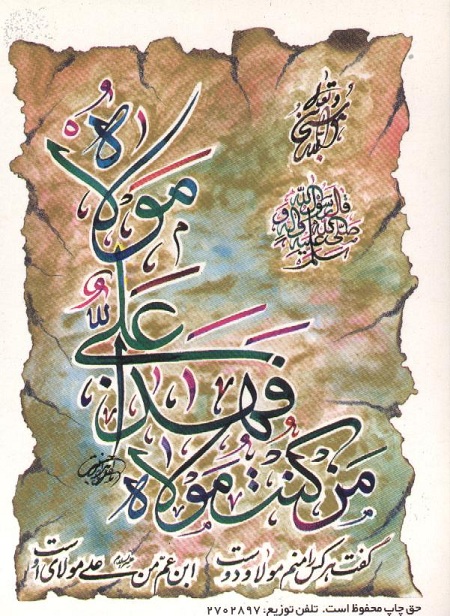 قال رسول الله صلی الله علیه و آله و سلم
من کنت مولاه
فهذا
علی
مولاه
گفت هر کس را منم مولا و دوست ابن عم من علی مولای اوست
حق چاپ محفوظ است. تلفن توزیع: ۲۷۰۲۸۹۷